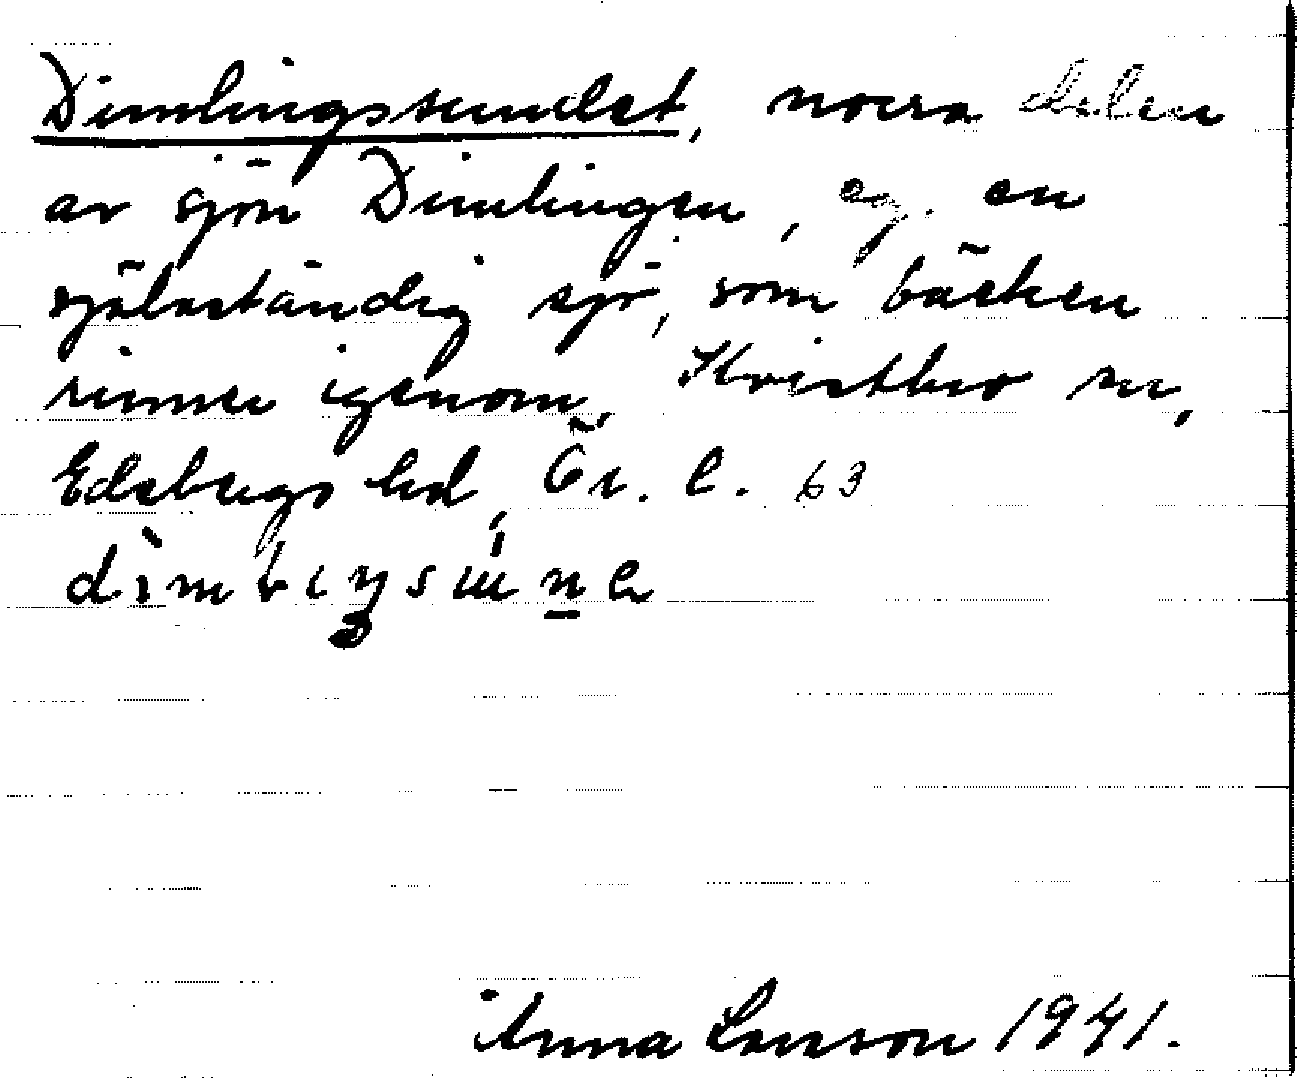 Dimlingssundet, norra delen
av sjön Dimlingen, eg. en
självständig sjö, som bäcken
rinner igenom, Kvistbro sn,
Edsbergs hd, Ör. l. 63
Anna Larsson 1941.